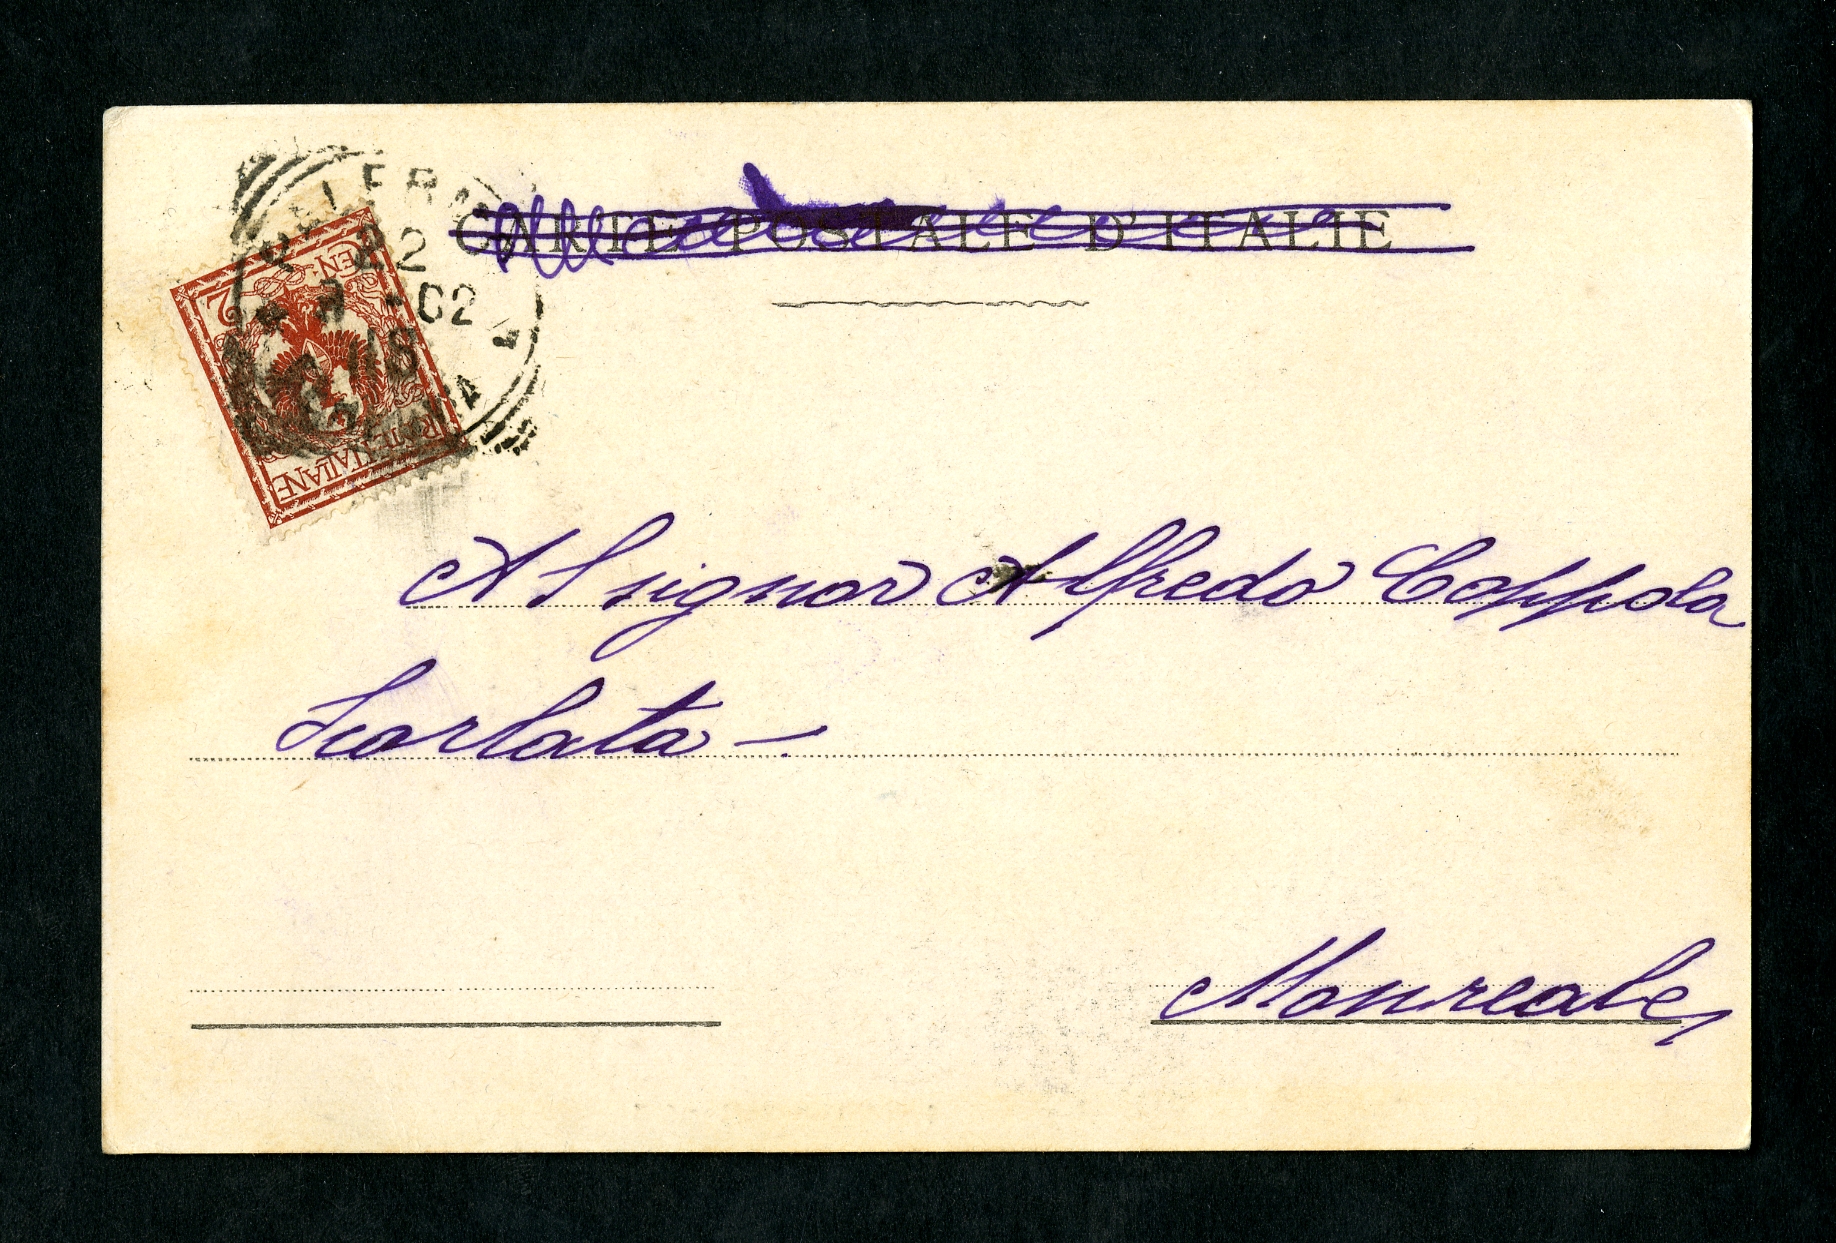 CARTE POSTALE D'ITALIE
PALERMO
22
-02
18
CEN. 2
POSTE ITALIANE
Al signor Alfredo Coppola
Scarlata -
Monreale